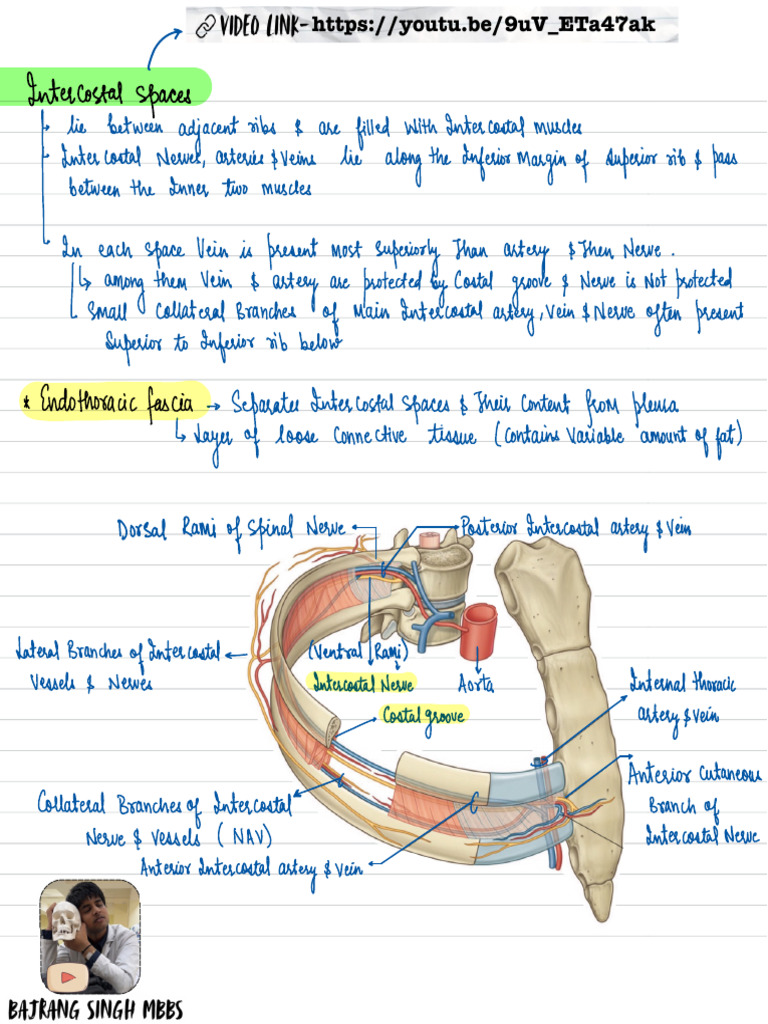 VIDEO LINK- https://youtu.be/9uV_ETa47ak
Intercostal spaces
lie between adjacent ribs & are filled with Intercostal muscles
Intercostal Nerves, arteries & Veins lie along the Inferior Margin of superior rib & pass
between the Inner two muscles
In each space Vein is present most superiorly Than artery & Then Nerve.
among them Vein & artery are protected by Costal groove & Nerve is Not protected
Small Collateral Branches of Main Intercostal artery, Vein & Nerve often present
Superior to Inferior rib below
* Endothoracic fascia → Separates Intercostal spaces & Their Content from pleura
Layer of loose Connective tissue (contains Variable amount of fat)
Dorsal Rami of Spinal Nerve
Posterior Intercostal artery & Vein
Lateral Branches of Intercostal
Vessels & Nerves
(Ventral Rami)
Intercostal Nerve
Aorta
Costal groove
Internal thoracic
artery & vein
Anterior Cutaneous
Branch of
Intercostal Nerve
Collateral Branches of Intercostal
Nerve & Vessels (NAV)
Anterior Intercostal artery & Vein
BAJRANG SINGH MBBS